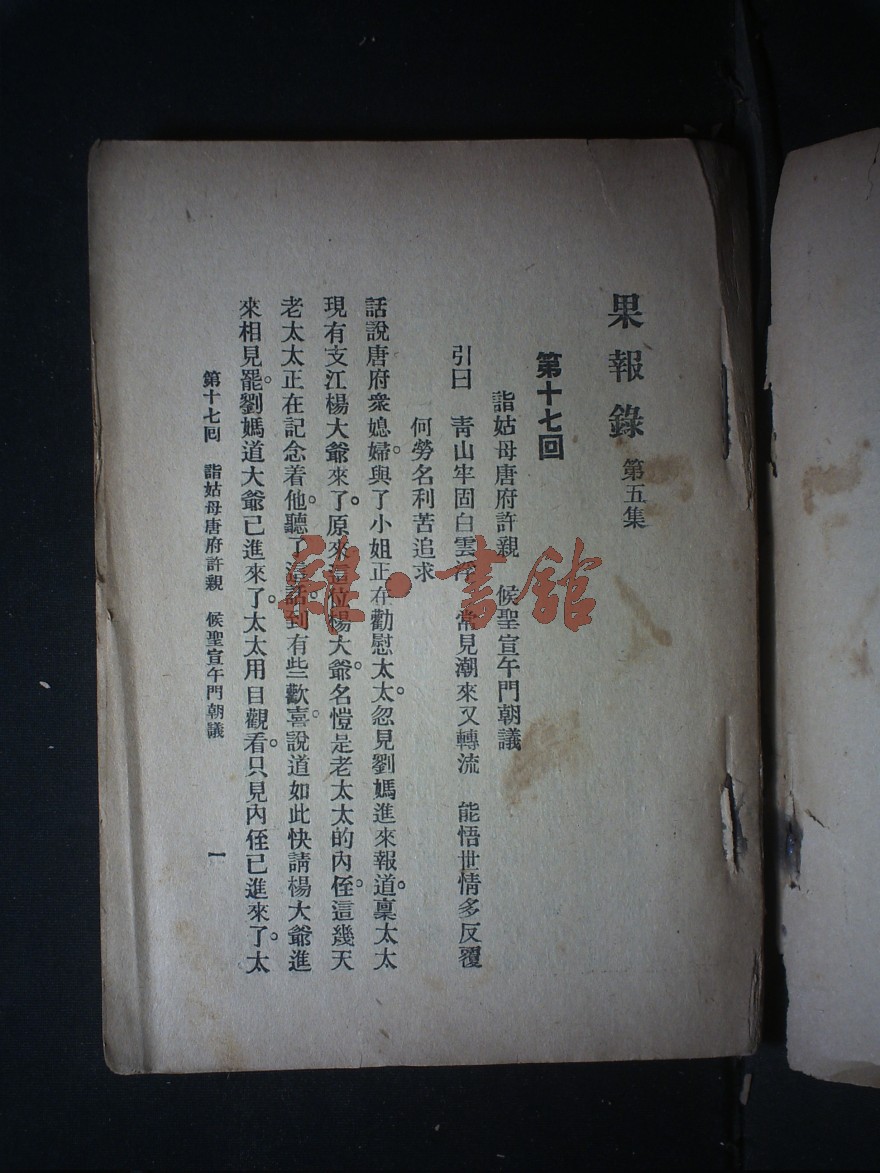 果報錄 第五集
第十七回
詣姑母唐府許親 候聖宣午門朝議
引曰 青山牢固白雲浮 常見潮來又轉流 能悟世情多反覆
何勞名利苦追求
話說唐府衆媳婦。與了小姐正在勸慰太太。忽見劉媽進來報道。稟太太
現有支江楊大爺來了。原來這位楊大爺。名愷是老太太的內侄。這幾天
老太太正在記念着他。聽了這話。到有些歡喜。說道如此快請楊大爺進
來相見罷。劉媽道大爺已進來了。太太用目觀看。只見內侄已進來了。太
第十七回 詣姑母唐府許親 候聖宣午門朝議 一
雜·書館